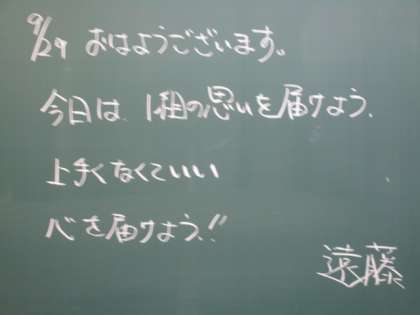 9/29 おはようございます。
今日は、1組の思いを届けよう、
上手くなくていいい
心を届けよう!!
遠藤